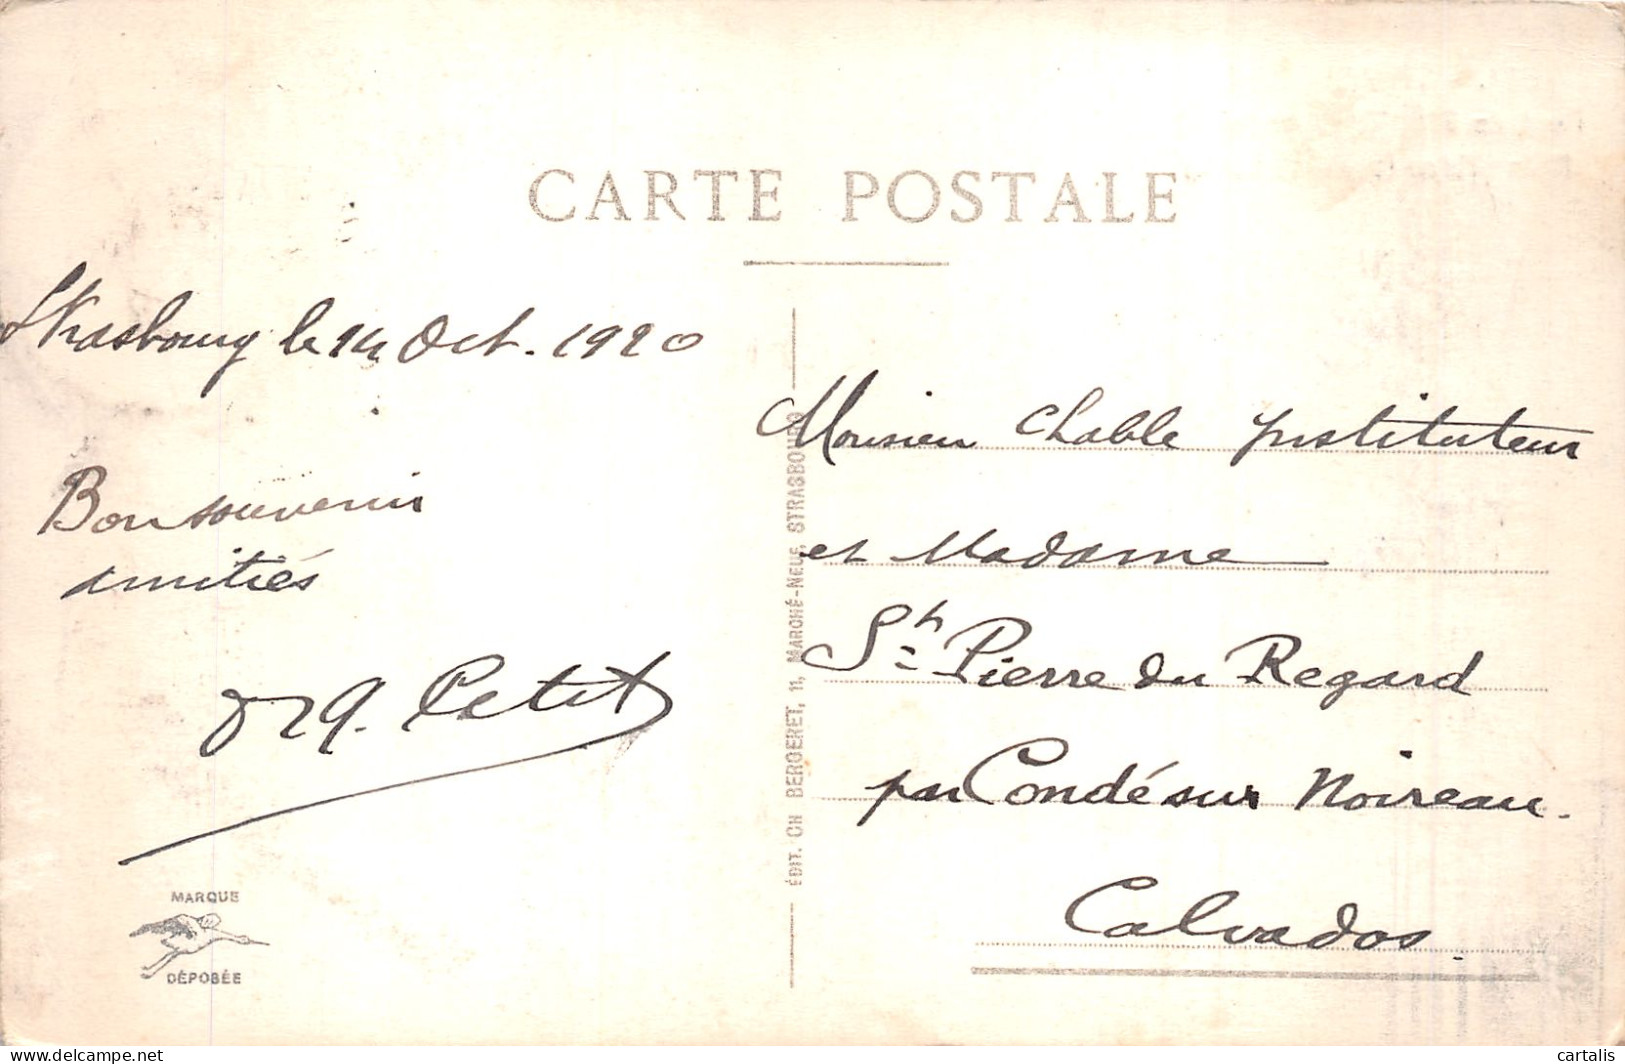 CARTE POSTALE
Strasbourg le 14 Oct. 1920
Bon souvenir
amitiés
Petit
MARQUE
DÉPOSÉE
ÉDIT. CH BERGERET, 11, MARCHÉ-NEUF, STRASBOURG
Monsieur Chable Instituteur
et Madame
St Pierre du Regard
par Condé sur Noireau.
Calvados
cartalis.delcampe.net
cartalis